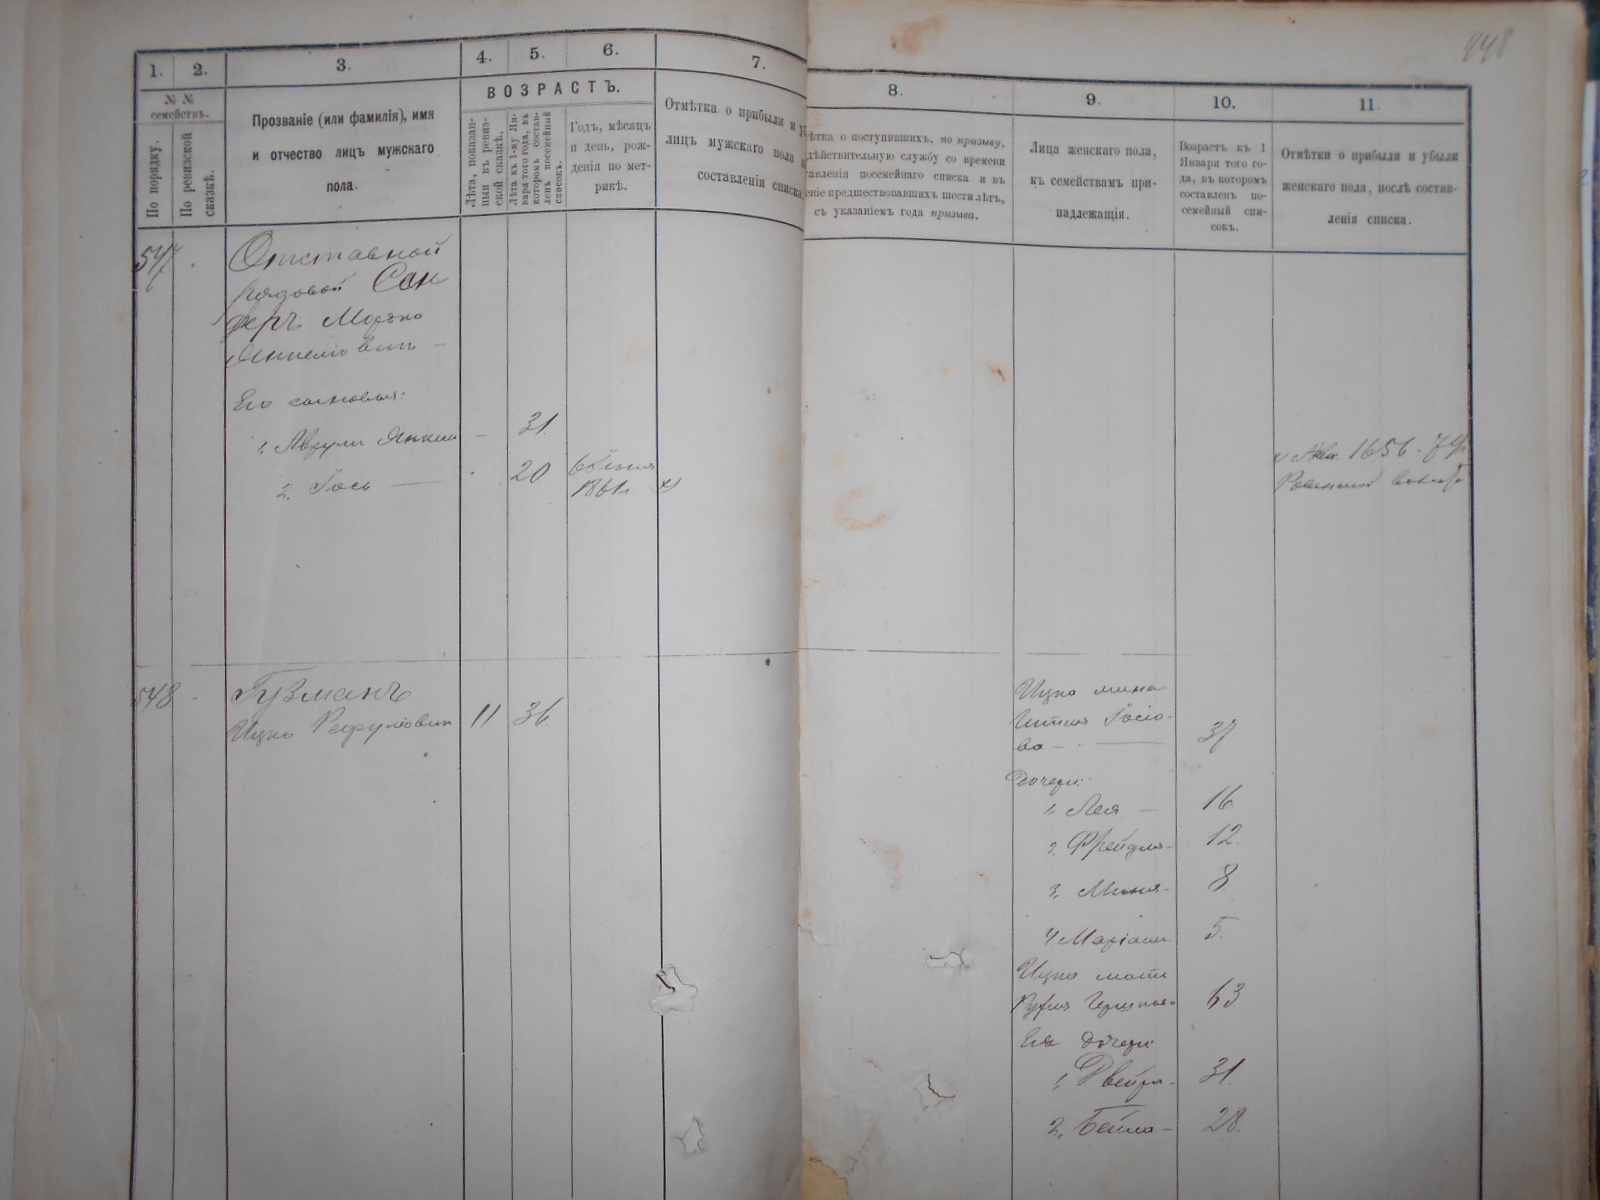 948
1.
2.
3.
4.
5.
6.
7.
8.
9.
10.
11.
№ №
семействъ.
По порядку.
По ревизской
сказкѣ.
Прозваніе (или фамилія), имя
и отчество лицъ мужскаго
пола.
ВОЗРАСТЪ.
Лѣта, показан-
ныя въ ревиз-
ской сказкѣ.
Лѣта къ 1-му Ян-
варя того года, въ
которомъ состав-
ленъ посемейный
списокъ.
Годъ, мѣсяцъ
и день, рож-
денія по мет-
рикѣ.
Отмѣтка о прибыли и
лицъ мужского пола
составленія списка.
ѣтка о поступившихъ, по призыву,
дѣйствительную службу со времени
авленія посемейнаго списка и въ
еніе предшествовавшихъ шести лѣтъ,
съ указаніемъ года призыва.
Лица женскаго пола,
къ семействамъ при-
надлежащія.
Возрастъ къ 1
Января того го-
да, въ которомъ
составленъ по-
семейный спи-
сокъ.
Отмѣтки о прибыли и убыли
женскаго пола, послѣ состав-
ленія списка.
547
Отставной
рядовой Сан
деръ Мошко
Янкелiовичъ
Его сыновья:
1, Аврумъ Янкель 31.
2. Іось 20
1861г.
1656.
548
Гузманъ
Ицко Рефуловичъ 11 36
Ицко жена
Іосiо-
ва 37
Дочери:
1, Лея 16
2, Фрейдля 12.
3, Миня 8
4 Маріаси 5.
Ицко мать
63
Ея дочери
1, Двейра 31.
2, Бейла 28.